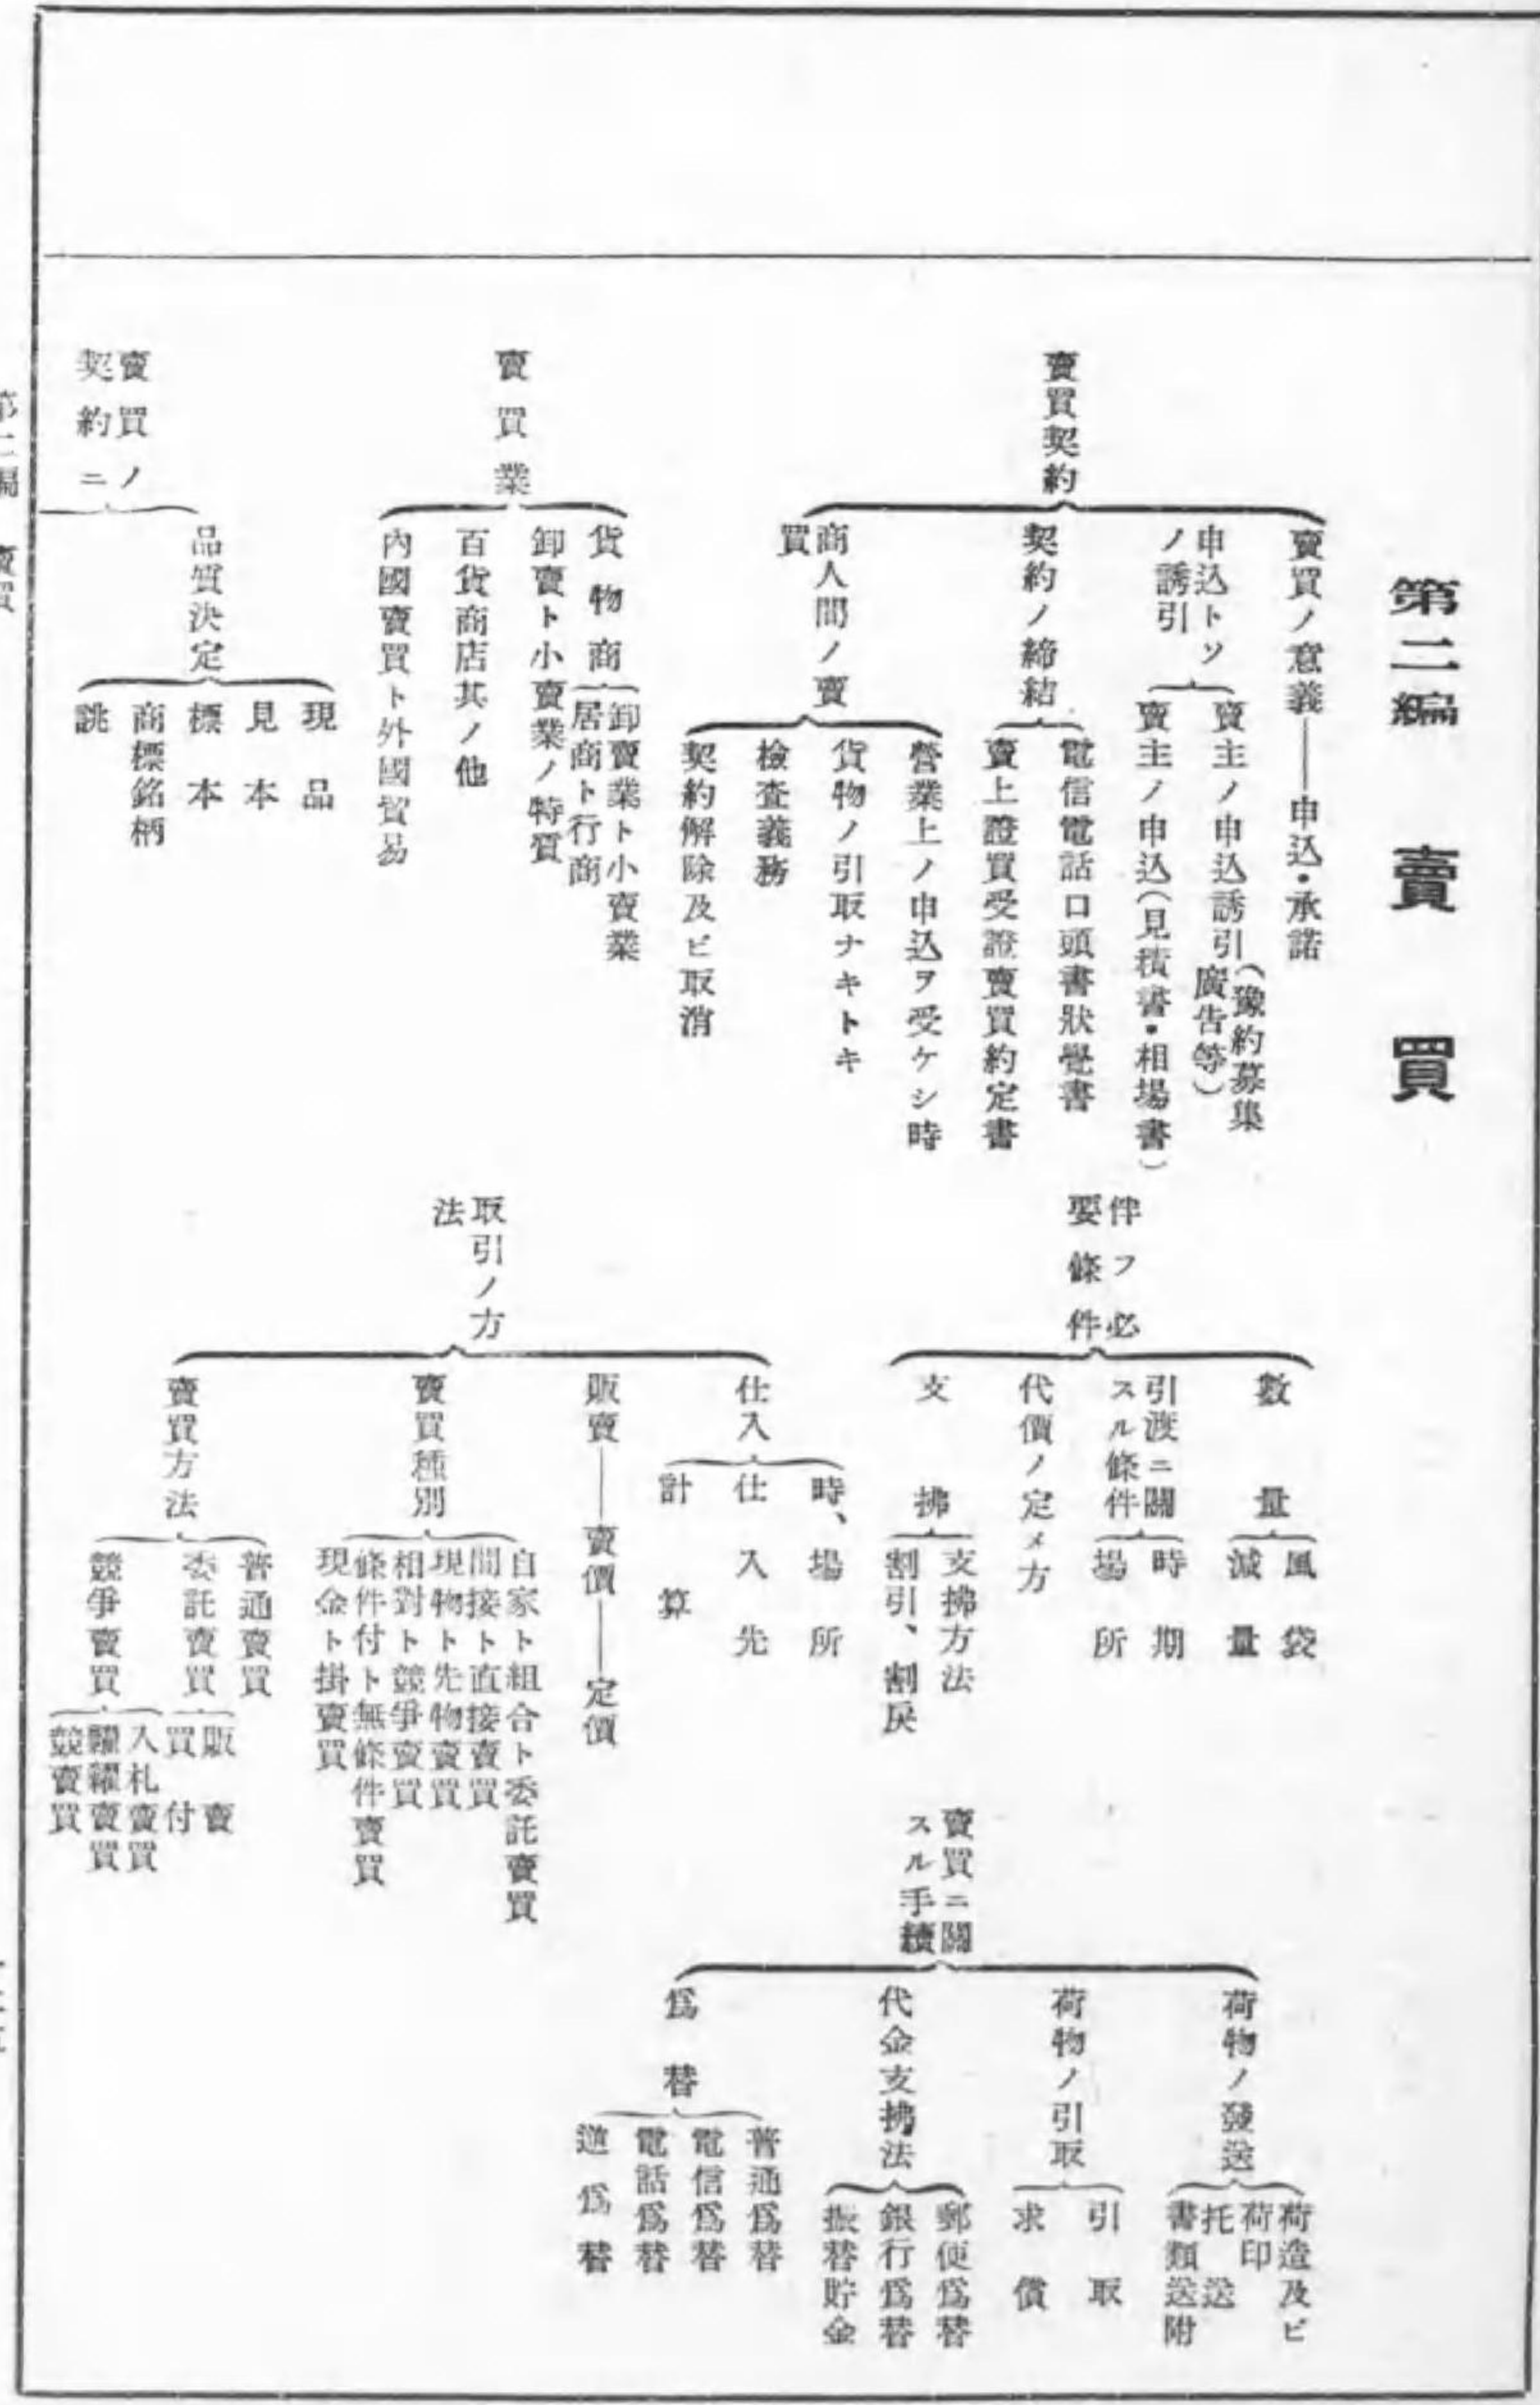 第二編 賣買
賣買契約
賣買ノ意義――申込・承諾
申込トソ
ノ誘引
賣主ノ申込誘引(豫約募集
廣告等)
賣主ノ申込(見積書・相場書)
契約ノ締結
電信電話口頭書狀覺書
賣上證買受證賣買約定書
商人間ノ賣
買
營業上ノ申込ヲ受ケシ時
貨物ノ引取ナキトキ
檢査義務
契約解除及ビ取消
賣買業
貨物商
卸賣業ト小賣業
居商ト行商
卸賣ト小賣業ノ特質
百貨商店其ノ他
內國賣買ト外國貿易
賣買ノ
契約ニ
品質決定
現品
見本
標本
商標銘柄
誂
伴フ必
要條件
數量
風袋
減量
引渡ニ關
スル條件
時期
場所
代價ノ定メ方
支拂
支拂方法
割引、割戾
取引ノ方
法
仕入
時、場所
仕入先
計算
販賣――賣價――定價
賣買種別
自家ト組合ト委託賣買
間接ト直接賣買
現物ト先物賣買
相對ト競爭賣買
條件付ト無條件賣買
現金ト掛賣買
賣買方法
普通賣買
委託賣買
販賣
買付
競爭賣買
入札賣買
糶糴賣買
競賣買
賣買ニ關
スル手續
荷物ノ發送
荷造及ビ
荷印
托送
書類送附
荷物ノ引取
引取
求償
代金支拂法
郵便爲替
銀行爲替
振替貯金
爲替
普通爲替
電信爲替
電話爲替
逆爲替
第二編 賣買